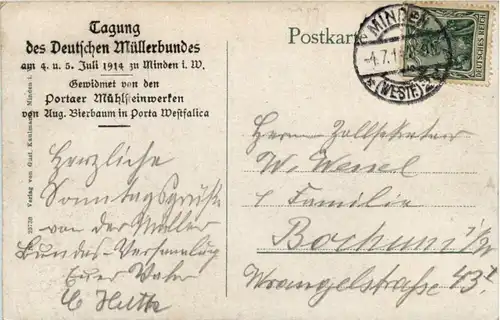 Tagung
des Deutschen Müllerbundes
am 4. u. 5. Juli 1914 zu Minden i. W.
Gewidmet von den
Portaer Mühlsteinwerken
von Aug. Bierbaum in Porta Westfalica
Verlag von Gust. Minden i.
Postkarte
MINDEN
(WESTF.)
DEUTSCHES REICH
Herzliche
Sonntagsgrüße
von der Müller
Bundes-Versammlung
Euer Vater
Herrn Zollsekretär
W. Wessel
Familie
Bochum i/W
Wrangelstraße 43